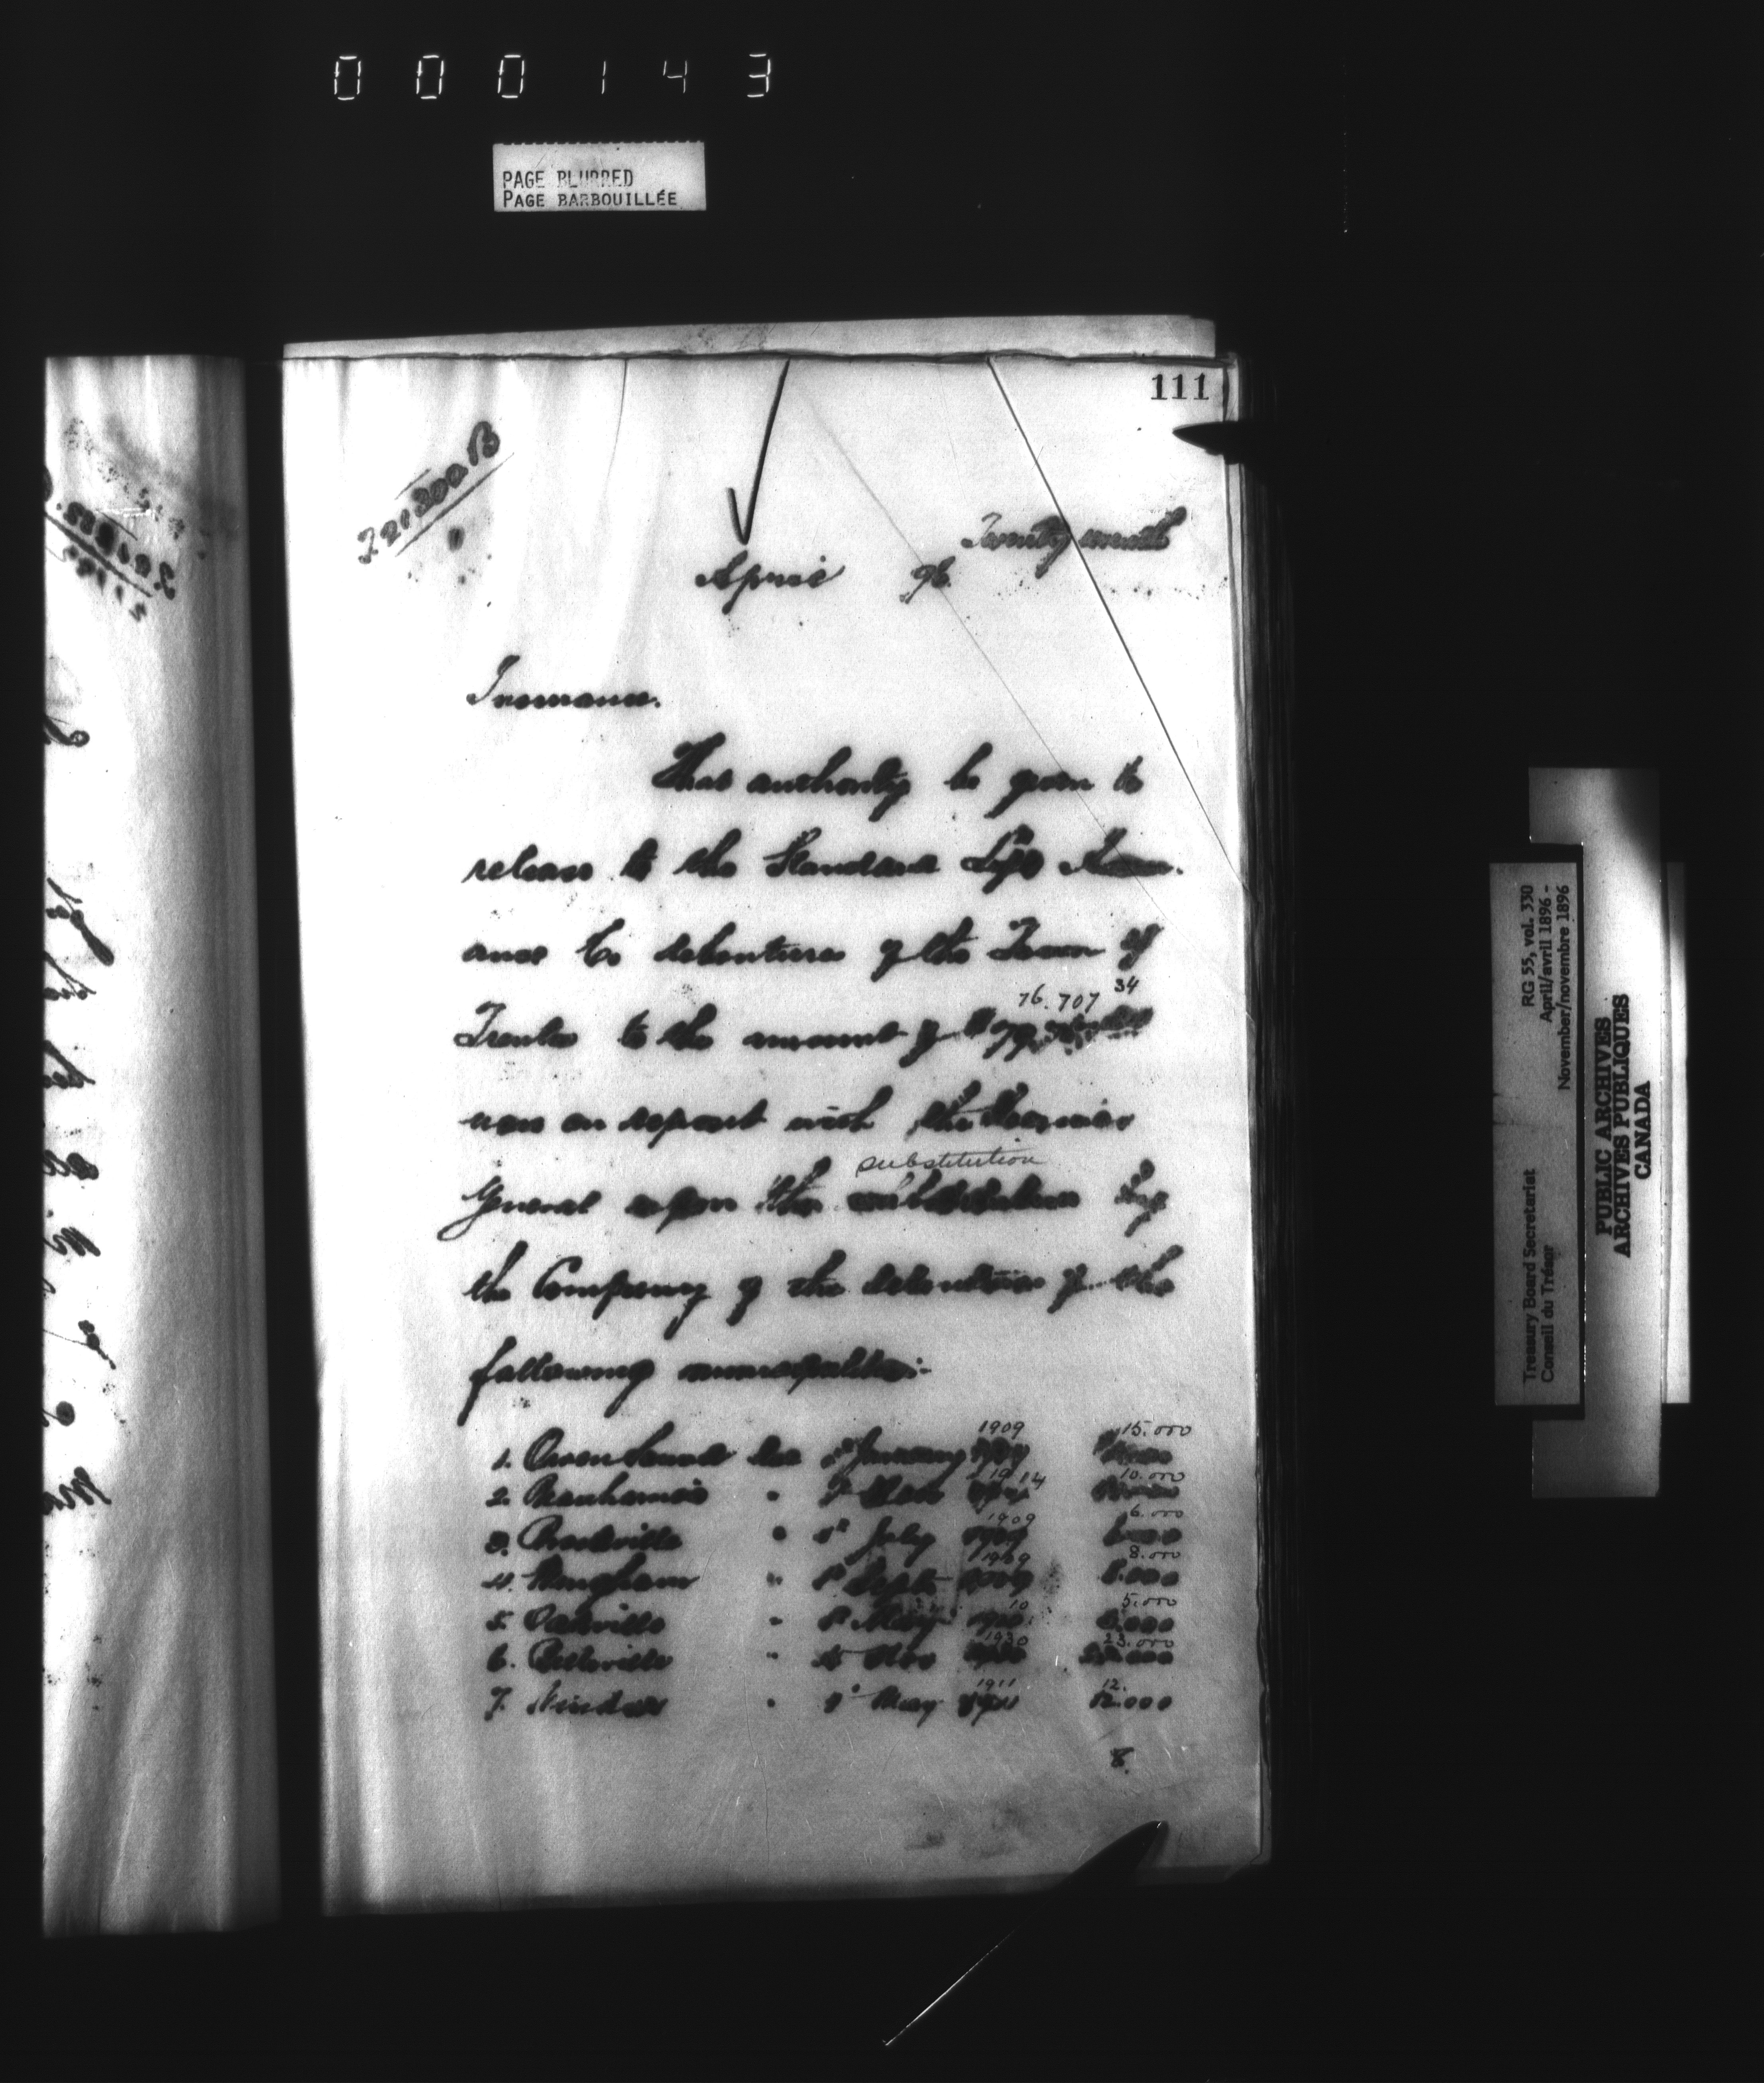 000143
PAGE BLURRED
PAGE BARBOUILLÉE
111
Twenty seventh
April 96
Insurance.
That authority be given to
release to the Standard Life Assur-
ance Co debentures of the Town of
76.707 34
to the amount of $
now on deposit with the Receiver
substitution
General upon the substitution by
the Company of the debentures of the
following municipalities:-
1909 15.000
1. Owen Sound due 1st January 1909
1914 10.000
2. Beauharnois " Nov
1909 6.000
3. Brockville " 1st July 1909 6.000
1909 8.000
4. Wingham " 1st Sept 1909 8.000
10 5.000
5. Oakville " 1st May 1910 5.000
1930 23.000
6. Belleville " Nov 1930 23.000
1911 12.
7. Windsor " 1st May 1911 12.000
8.
Treasury Board Secretariat RG 55, vol. 330
Conseil du Trésor April/avril 1896 -
November/novembre 1896
PUBLIC ARCHIVES
ARCHIVES PUBLIQUES
CANADA